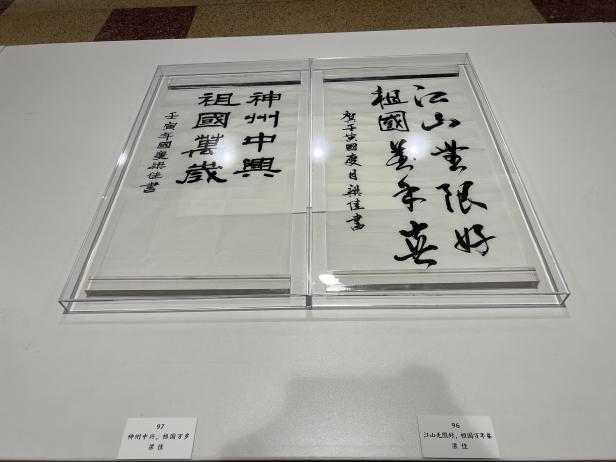 江山無限好
祖國萬年春
壬寅國慶日梁佳書
神州中興
祖國萬歲
壬寅年國慶梁佳書
97
神州中兴，祖国万岁
梁佳
96
江山无限好，祖国万年春
梁佳